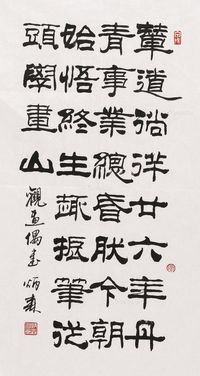 輦道徜徉廿六年丹
青事業總昏肰今朝
始悟終生趣握筆從
頭學畫山
觀畫偶書 炳森